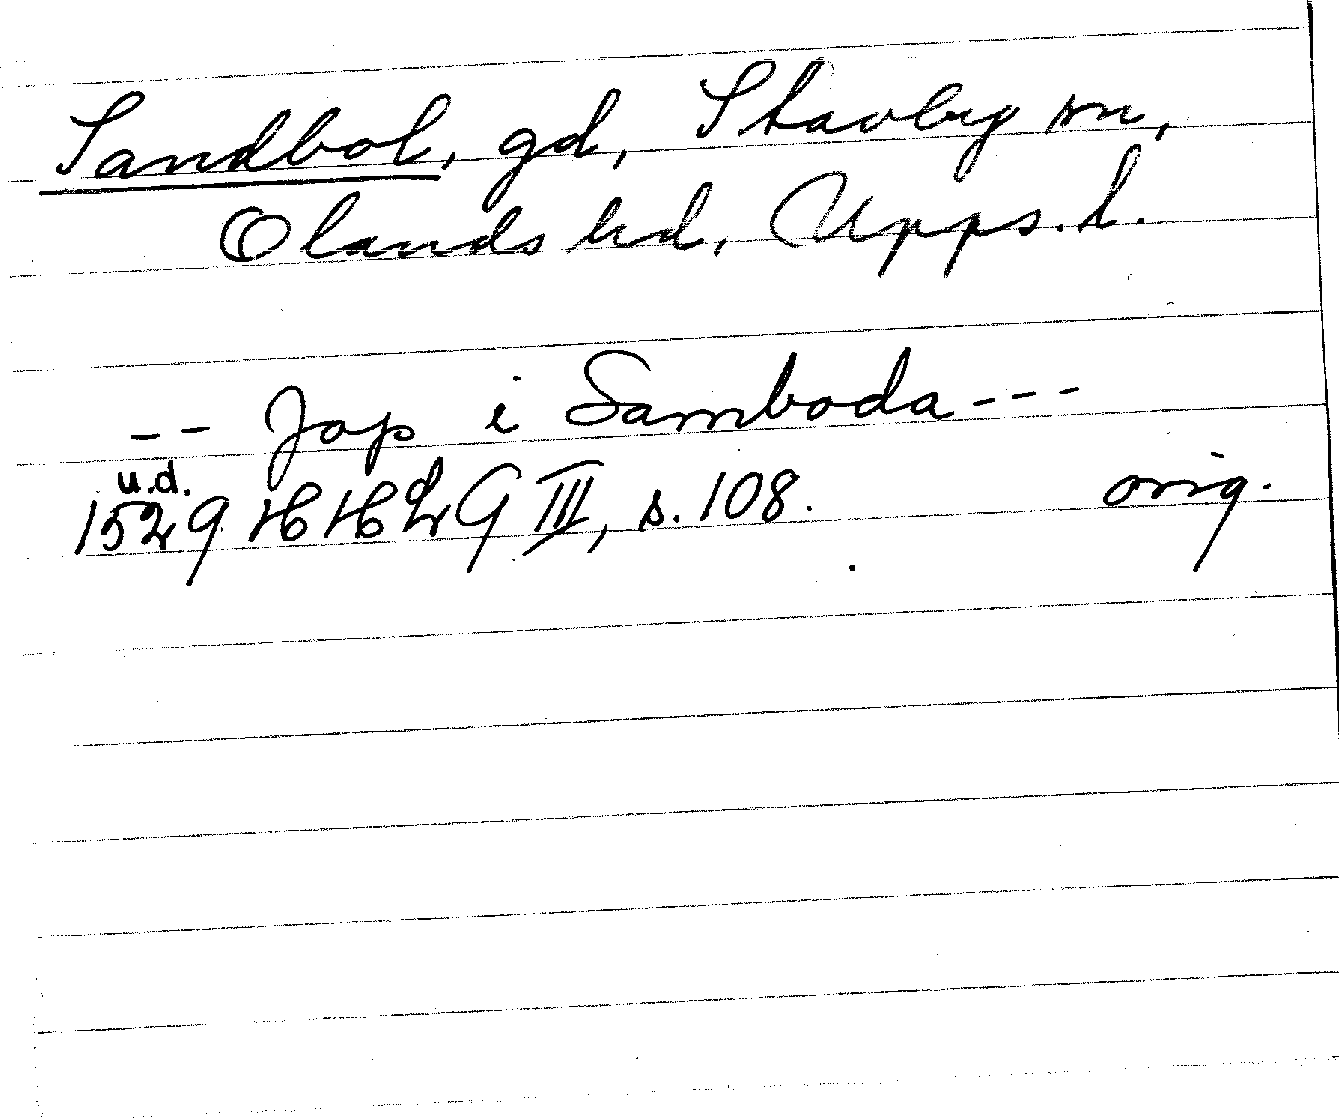 Sandbol, gd, Stavby sn,
Olands hd, Upps. l.
-- Jop i Samboda ---
u.d.
1529 HH2 G III, s. 108. orig.